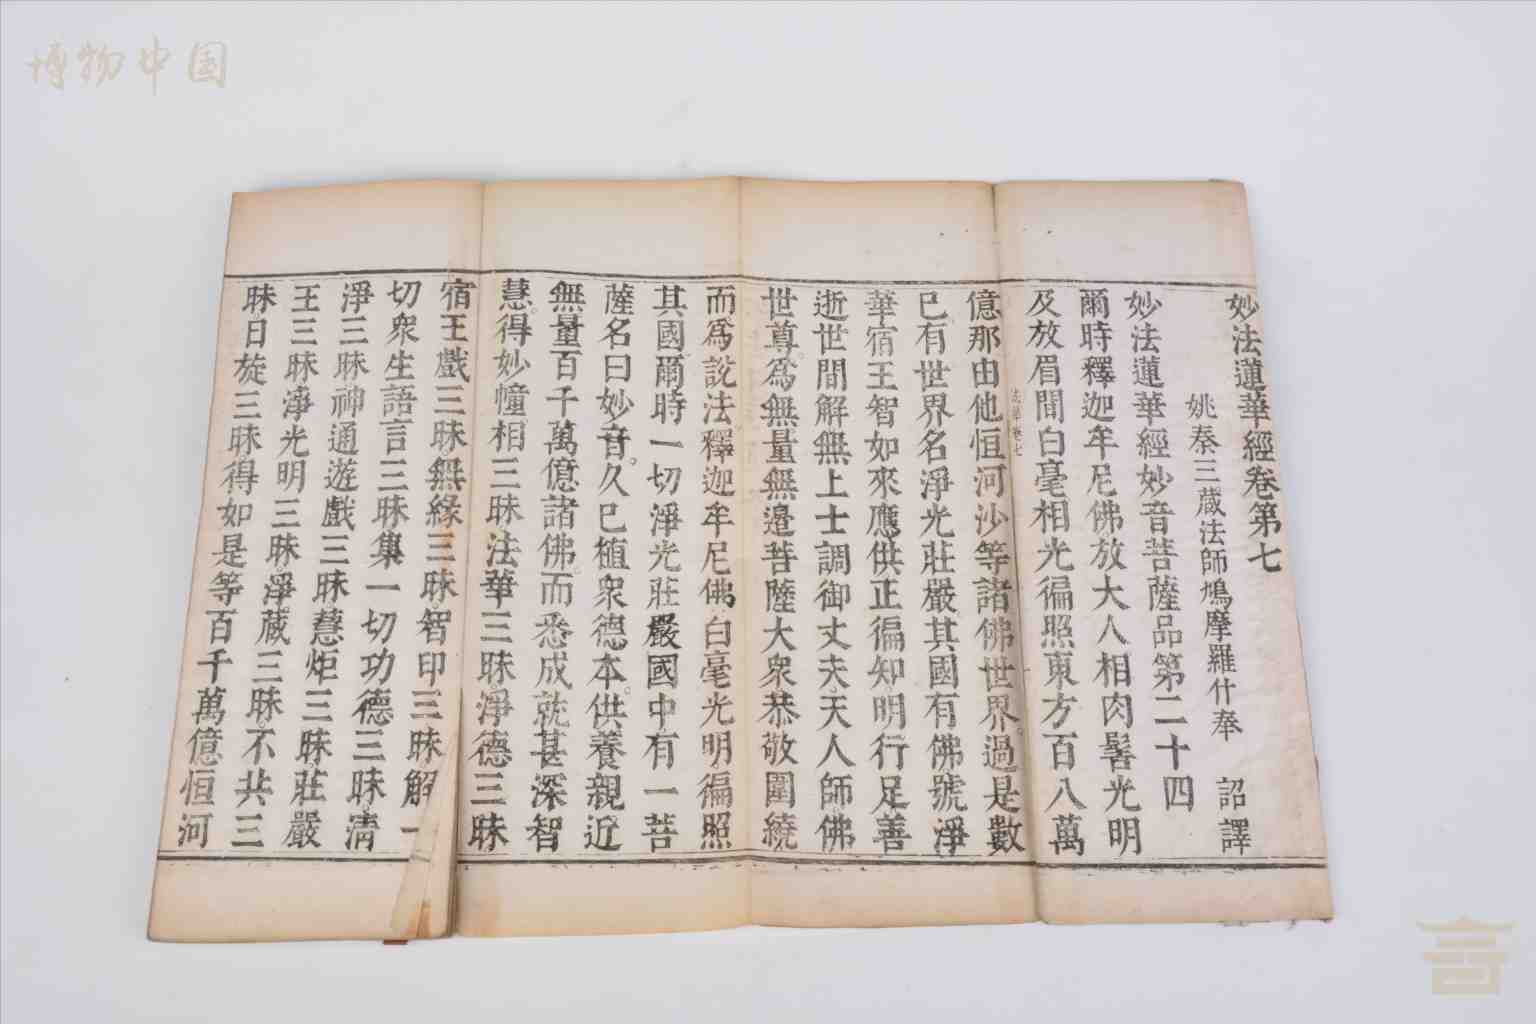 博物中国
妙法蓮華經卷第七
姚秦三蔵法師鳩摩羅什奉 詔譯
妙法蓮華經妙音菩薩品第二十四
爾時釋迦牟尼佛放大人相肉髻光明
及放眉間白毫相光徧照東方百八萬
法華卷七
億那由他恒河沙等諸佛世界。過是數
已有世界名淨光莊嚴其國有佛號淨
華宿王智如來應供正徧知明行足善
逝世間解無上士調御丈夫天人師佛
世尊。爲無量無邊菩薩大衆恭敬圍繞
而爲説法釋迦牟尼佛白毫光明徧照
其國爾時一切淨光莊嚴國中有一菩
薩名曰妙音。久已植衆德本。供養親近
無量百千萬億諸佛。而悉成就甚深智
慧。得妙幢相三昧法華三昧淨德三昧
宿王戲三昧無緣三昧智印三昧解一
切衆生語言三昧集一切功德三昧清
淨三昧神通遊戲三昧慧炬三昧莊嚴
王三昧淨光明三昧淨蔵三昧不共三
昧日旋三昧得如是等百千萬億恒河